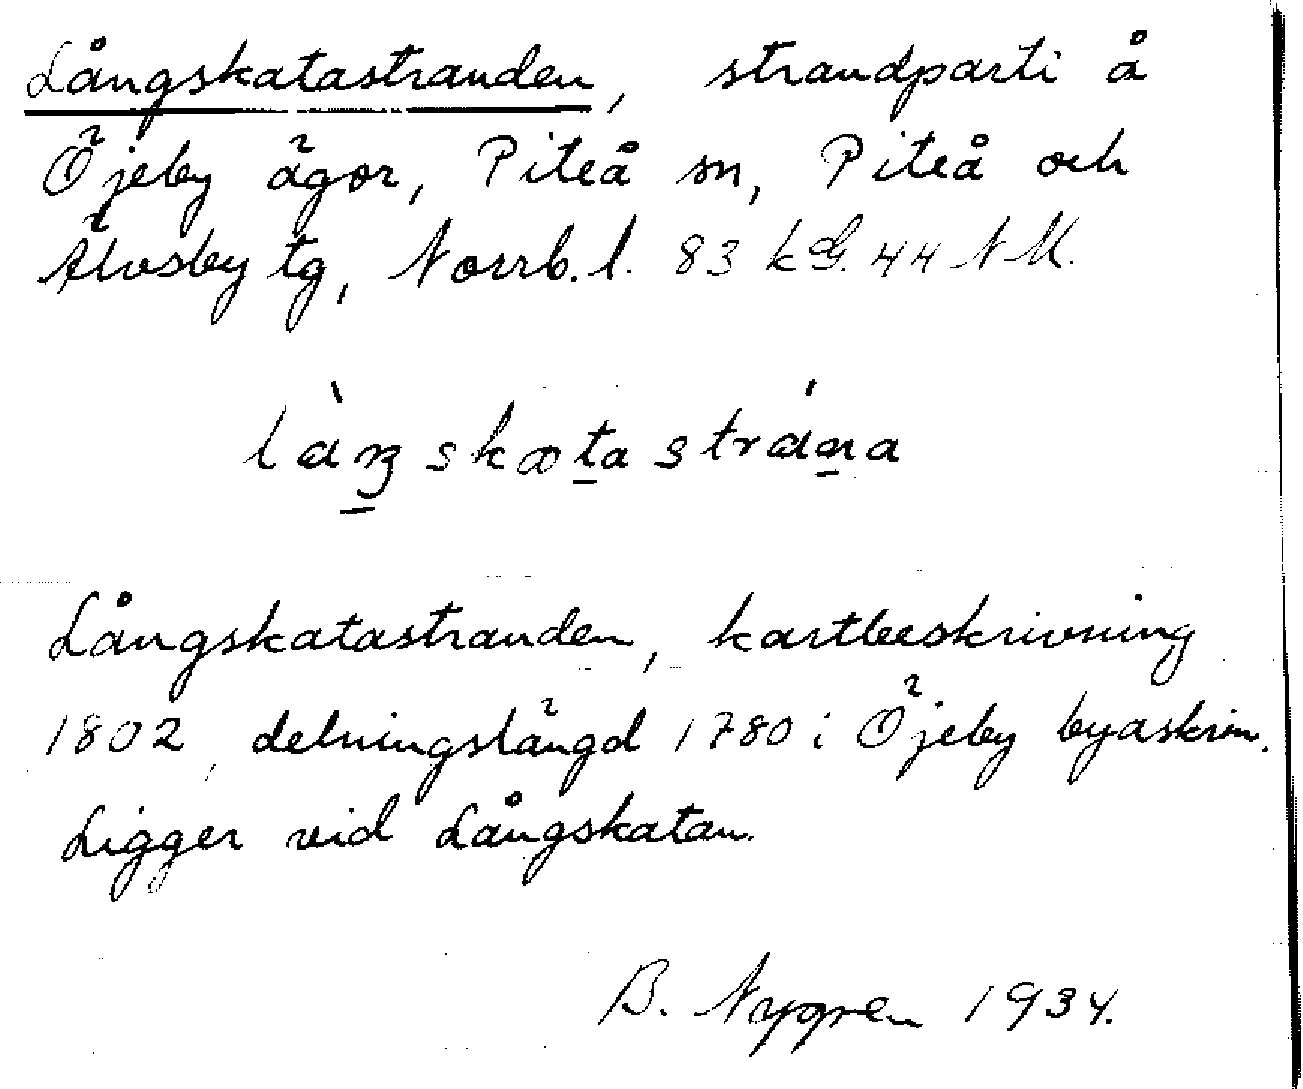 Långskatastranden, strandparti å
Öjeby ägor, Piteå sn, Piteå och
Älvsby tg, Norrb. l. 83 k G. 44 N M.
làŋskatastrána
Långskatastranden, kartbeskrivning
1802, delningslängd 1780 i Öjeby byaskrin.
Ligger vid Långskatan.
B. Nygren 1934.